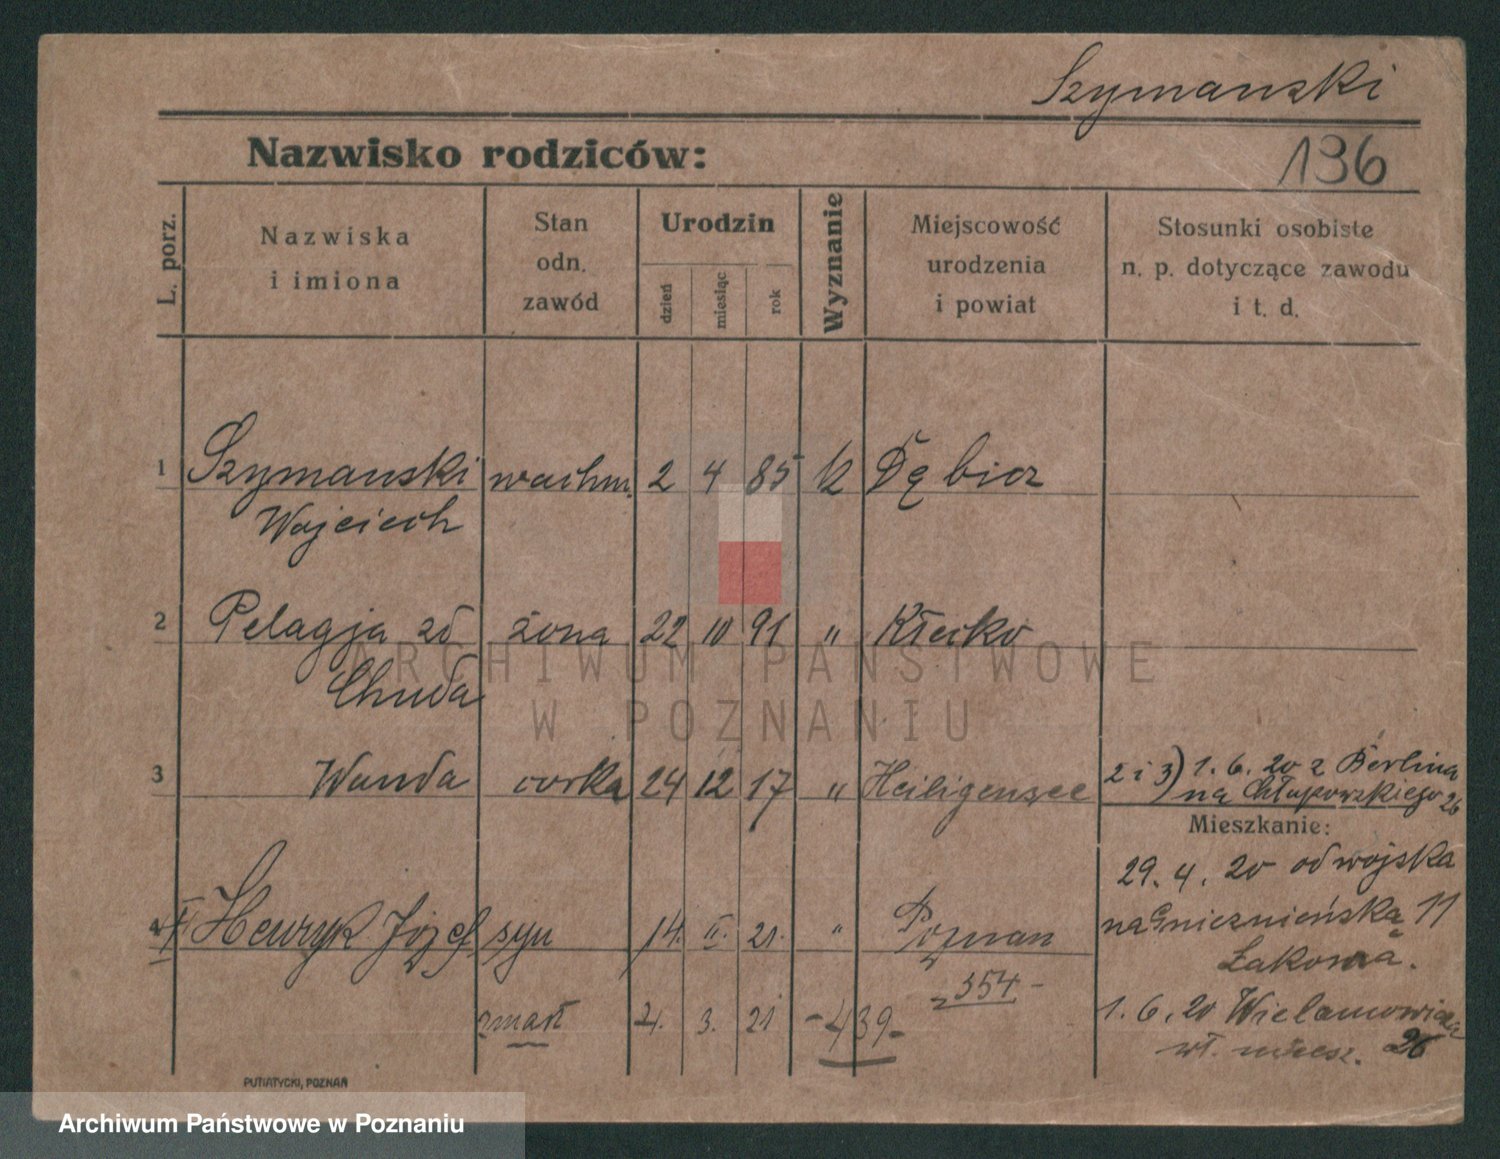 Szymanski
Nazwisko rodziców:
136
L. porz.
Nazwiska
i imiona
Stan
odn.
zawód
Urodzin
dzień
miesiąc
rok
Wyznanie
Miejscowość
urodzenia
i powiat
Stosunki osobiste
n. p. dotyczące zawodu
i t. d.
1 Szymanski wachm. 2 4 85
Wojciech
2 Pelagja zd żona 22 10 91 " Kłecko
Chuda
3 Wanda corka 24 12 17 " Heiligensee
2 i 3) 1. 6. 20 z Berlina
na Chłapowskiego 26
Mieszkanie:
29. 4. 20 od wojska
na Gnieznieńską 11
Łakowa.
4 Henryk Józef syn 14. II. 21. " Poznan
354 -
zmarł 3. 21 - 439 -
1. 6. 20
26
PUTIATYCKI, POZNAŃ
ARCHIWUM PAŃSTWOWE
W POZNANIU
Archiwum Państwowe w Poznaniu